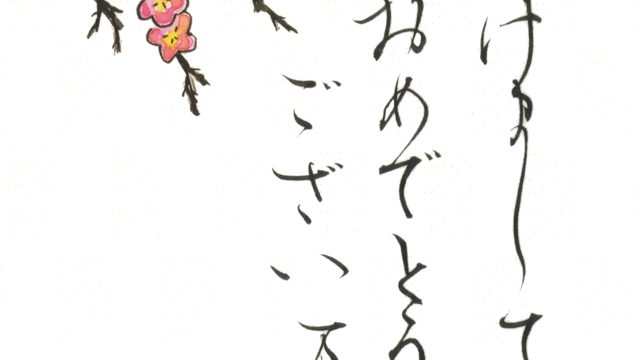 けまして
おめでとう
ございま